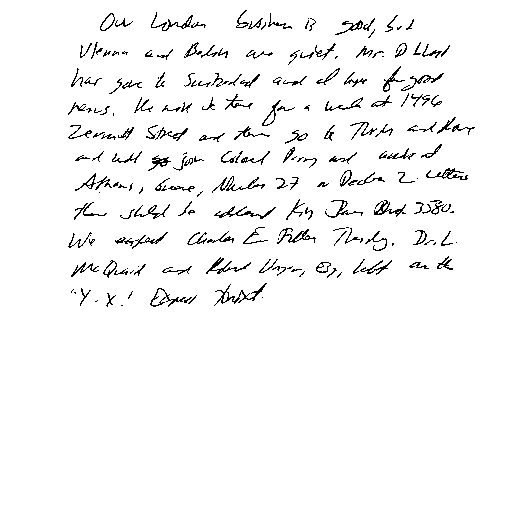 Our London business is good, but
Vienna and Berlin are quiet. Mr. D. Lloyd
has gone to Switzerland and I hope for good
news. He will be there for a week at 1496
Zermott Street and then go to Turin and Rome
and will join Colonel Parry and arrive at
Athens, Greece, November 27 or December 2. Letters
there should be addressed King James Blvd. 3580.
We expect Charles E. Fuller Tuesday. Dr. L.
McQuaid and Robert Unger, Esq., left on the
"Y. X." Express tonight.